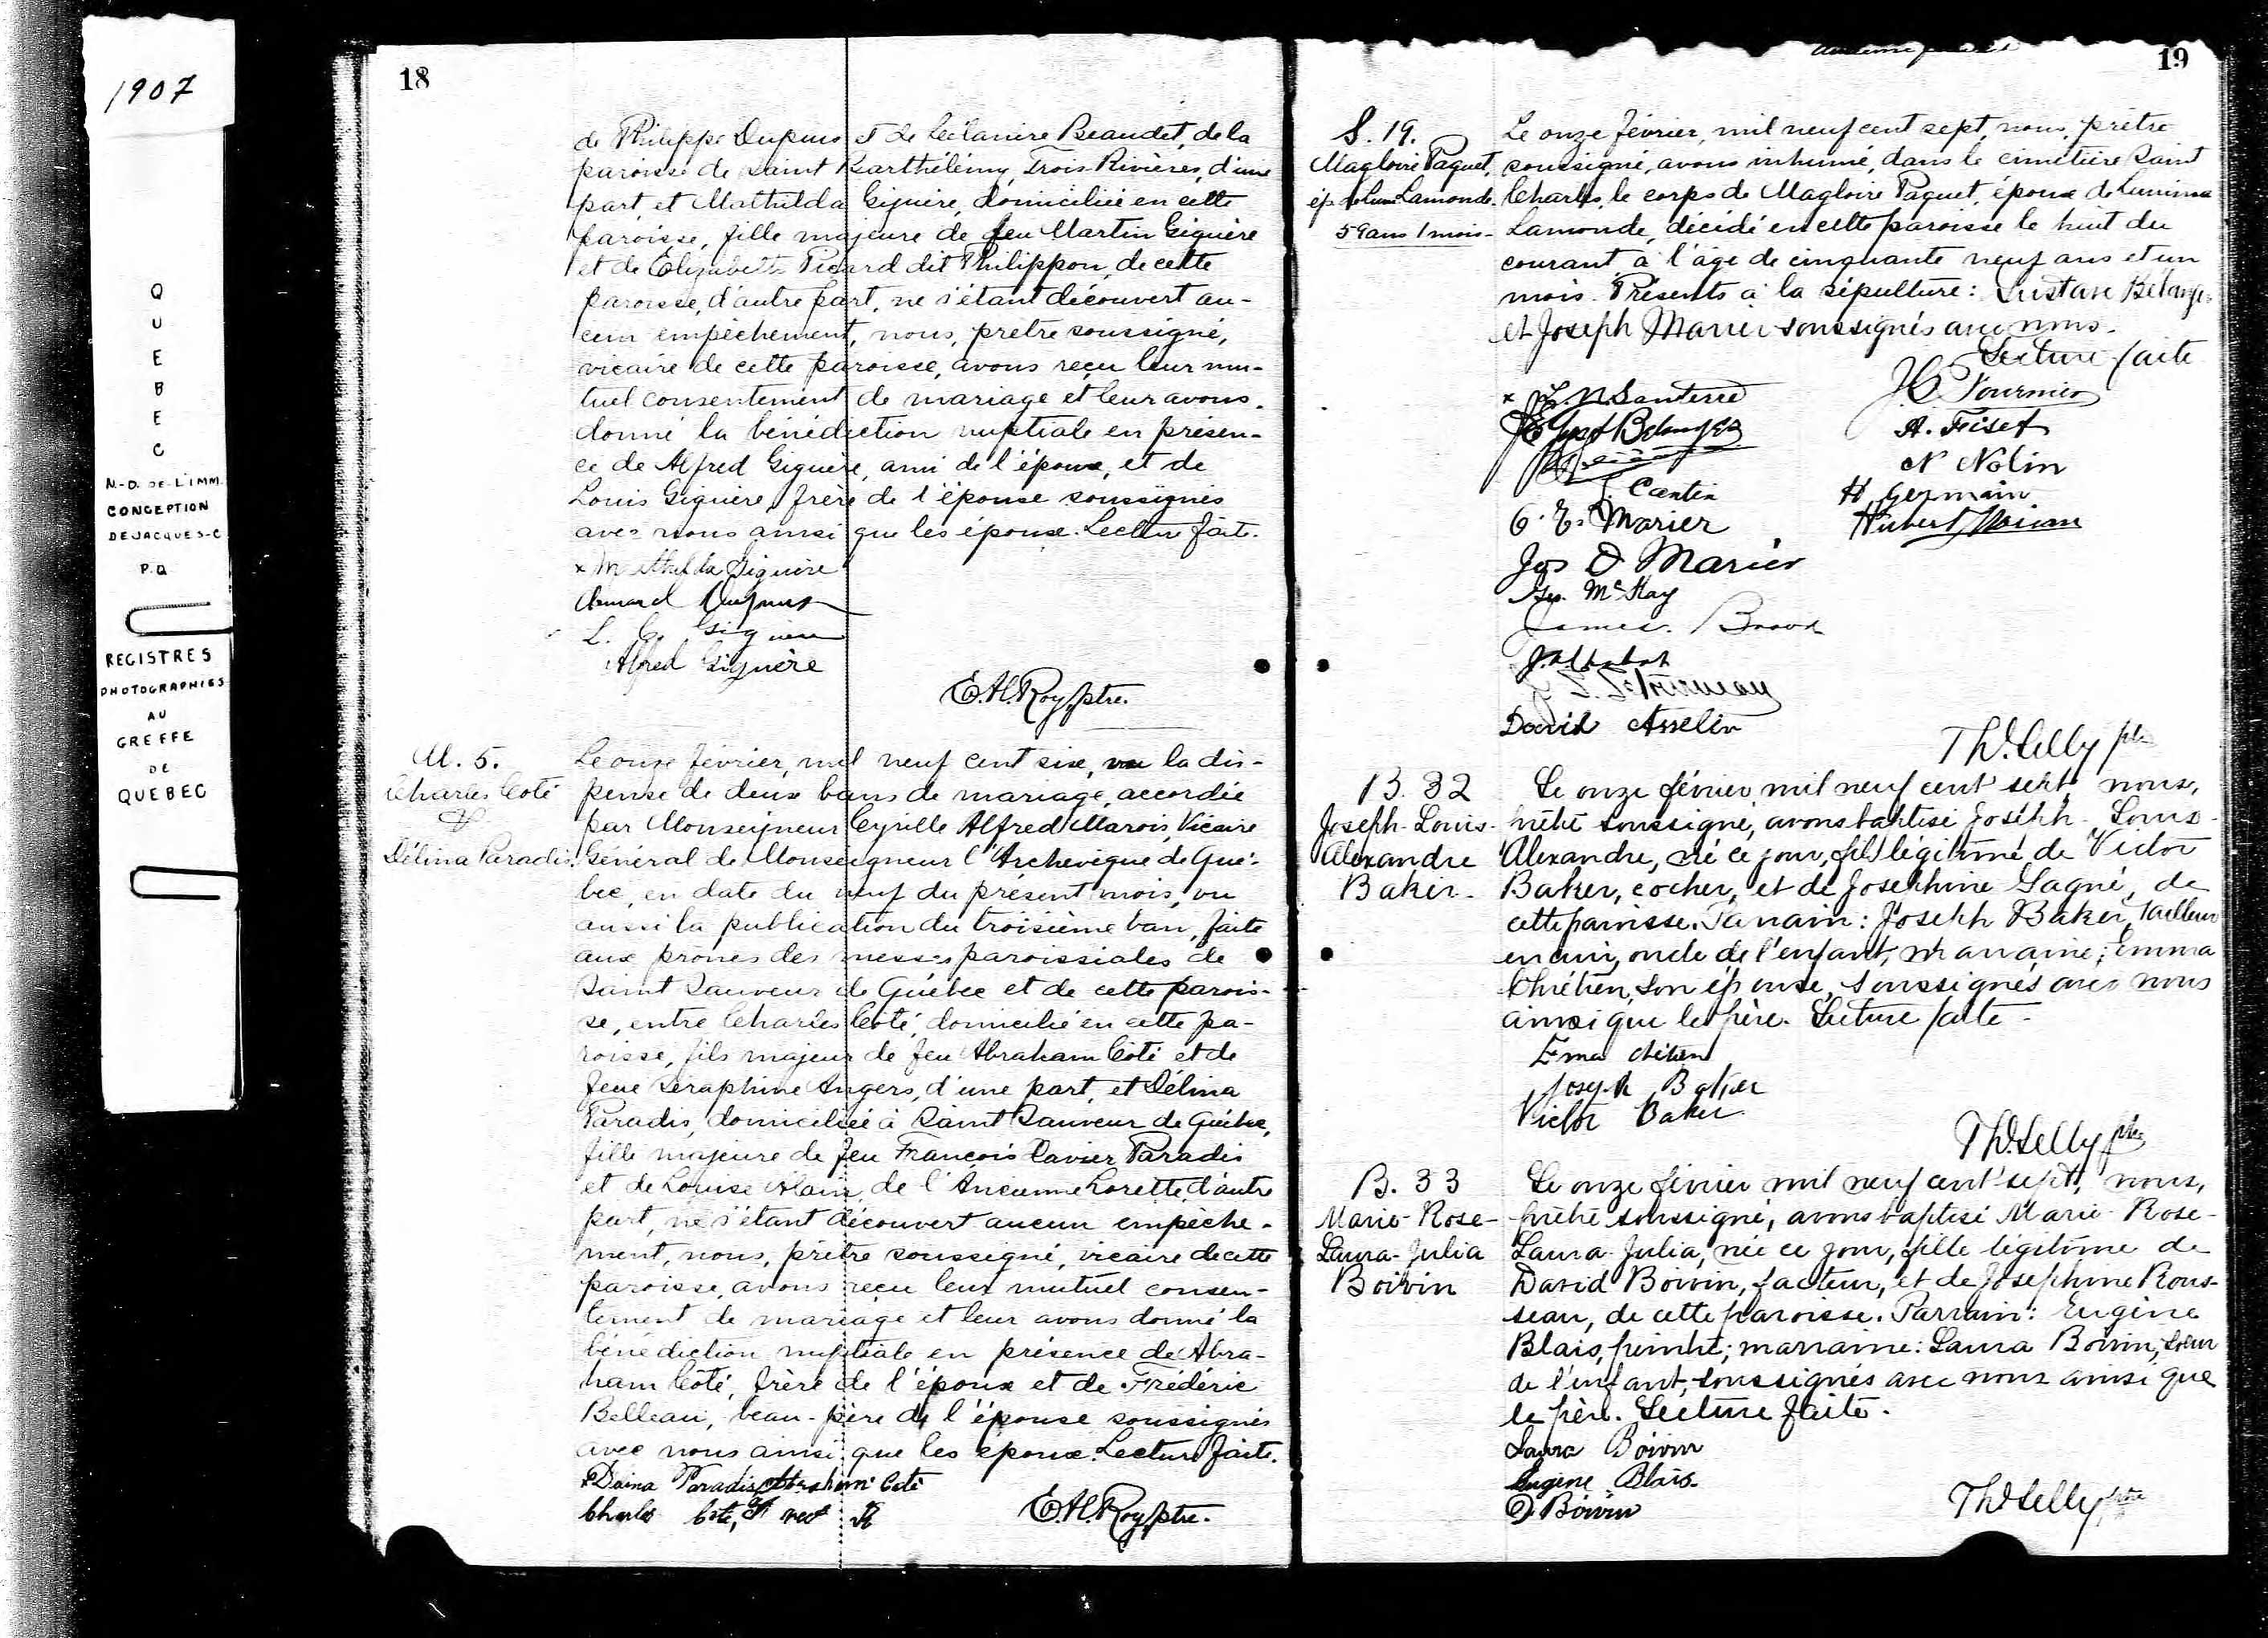 1907
QUEBEC
N.-D. DE L'IMM.
CONCEPTION
DE JACQUES-C
P.Q.
REGISTRES
PHOTOGRAPHIES
AU
GREFFE
DE
QUEBEC
18
de Philippe Dupuis et de Beaudet, de la
paroisse de Saint Barthélémy, Trois Rivières, d'une
part, et Mathilda Giguère, domiciliée en cette
paroisse, fille majeure de feu Martin Giguère
et de Elizabeth Picard dit Philippon, de cette
paroisse, d'autre part, ne s'étant découvert au-
cun empêchement, nous, prêtre soussigné,
vicaire de cette paroisse, avons reçu leur mu-
tuel consentement de mariage et leur avons
donné la bénédiction nuptiale en présen-
ce de Alfred Giguère, ami de l'époux, et de
Louis Giguère, frère de l'épouse soussignés
avec nous ainsi que les époux. Lecture faite.
x Mathilda Giguère
Dupuis
L. Giguère
Alfred Giguère
E. H. Roy, ptre.
M. 5.
Charles Coté
&
Délina Paradis.
Le onze février, mil neuf cent six, vu la dis-
pense de deux bans de mariage, accordée
par Monseigneur Cyrille Alfred Marois, Vicaire
Général de Monseigneur l'Archevêque de Qué-
bec, en date du neuf du présent mois, vu
aussi la publication du troisième ban, faite
aux prônes des messes paroissiales de
Saint Sauveur de Québec et de cette parois-
se, entre Charles Coté, domicilié en cette pa-
roisse, fils majeur de feu Abraham Coté et de
feue Séraphine Angers, d'une part, et Délina
Paradis, domiciliée à Saint Sauveur de Québec,
fille majeure de feu François Xavier Paradis
et de Louise Alain, de l'Ancienne Lorette, d'autre
part, ne s'étant découvert aucun empêche-
ment, nous, prêtre soussigné, vicaire de cette
paroisse, avons reçu leur mutuel consen-
tement de mariage et leur avons donné la
bénédiction nuptiale en présence de Abra-
ham Coté, frère de l'époux et de Frédéric
Belleau, beau-père de l'épouse soussignés
avec nous ainsi que les époux. Lecture faite.
Paradis, Abraham Coté
Charles Coté,
E. H. Roy, ptre.
19
S. 19.
Magloire Paquet,
ép. de Lamonde.
59 ans 1 mois.
Le onze février, mil neuf cent sept, nous, prêtre
soussigné, avons inhumé, dans le cimetière Saint
Charles, le corps de Magloire Paquet, époux de
Lamonde, décédé en cette paroisse le huit du
courant à l'âge de cinquante neuf ans et un
mois. Présents à la sépulture: Gustave Bélanger
et Joseph Marier soussignés avec nous.
Lecture faite
L. N. Santerre
Fournier
Belanger
A. Fiset
N Nolin
J. Cantin
H. Germain
C. E. Marier
Hubert Moisan
Jos O Marier
Geo. McKay
James
David Asselin
Th. Lelly ptre
B. 32
Joseph-Louis-
Alexandre
Baker.
Le onze février mil neuf cent sept nous,
prêtre soussigné, avons baptisé Joseph-Louis-
Alexandre, né ce jour, fils légitime de Victor
Baker, cocher, et de Josephine Gagné, de
cette paroisse. Parrain: Joseph Baker, tailleur
en cuir, oncle de l'enfant, marraine: Emma
Chrétien, son épouse, soussignés avec nous
ainsi que le père. Lecture faite.
Joseph Baker
Victor Baker
Th. Lelly ptre
B. 33
Marie-Rose-
Laura-Julia
Boivin
Le onze février mil neuf cent sept, nous,
prêtre soussigné, avons baptisé Marie-Rose-
Laura-Julia, née ce jour, fille légitime de
David Boivin, facteur, et de Josephine Rous-
seau, de cette paroisse. Parrain: Eugène
Blais, peintre; marraine: Laura Boivin, sœur
de l'enfant, soussignés avec nous ainsi que
le père. Lecture faite.
Laura Boivin
Eugène Blais.
D. Boivin
Th. Lelly ptre